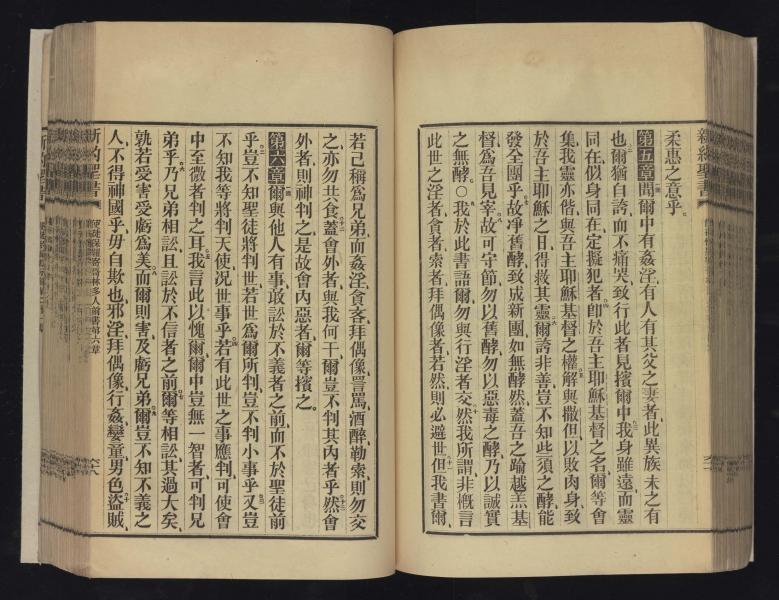 新約聖書
柔惠之意乎
第五章聞爾中有姦淫有人有其父之妻者此異族未之有
也爾猶自誇而不痛哭致行此者見擯爾中我身雖遠而靈
同在似身同在定擬犯者卽於吾主耶穌基督之名爾等會
集我靈亦偕與吾主耶穌基督之權解與撒但以敗肉身致
於吾主耶穌之日得救其靈爾誇非善豈不知些須之酵能
發全團乎故凈舊酵致成新團如無酵然蓋吾之踰越羔基
督爲吾見宰故可守節勿以舊酵勿以惡毒之酵乃以誠實
之無酵〇我於此書語爾勿與行淫者交然我所謂非槪言
此世之淫者貪者索者拜偶像者若然則必避世但我書爾
若已稱爲兄弟而姦淫貪吝拜偶像詈罵酒醉勒索則勿交
之亦勿共食蓋會外者與我何干爾豈不判其內者乎然會
外者則神判之是故會內惡者爾等擯之
第六章爾與他人有事敢訟於不義者之前而不於聖徒前
乎豈不知聖徒將判世若世爲爾所判豈不判小事乎又豈
不知我等將判天使況世事乎若有此世之事應判可使會
中至微者判之耳我言此以愧爾爾中豈無一智者可判兄
弟乎乃兄弟相訟且訟於不信者之前爾等相訟其過大矣
孰若愛害受虧爲美而爾則害及虧兄弟爾豈不知不義之
人不得神國乎毋自欺也邪淫拜偶像行姦孌童男色盜賊
新約聖書 使徒保羅寄哥林多人前書第六章 六十八